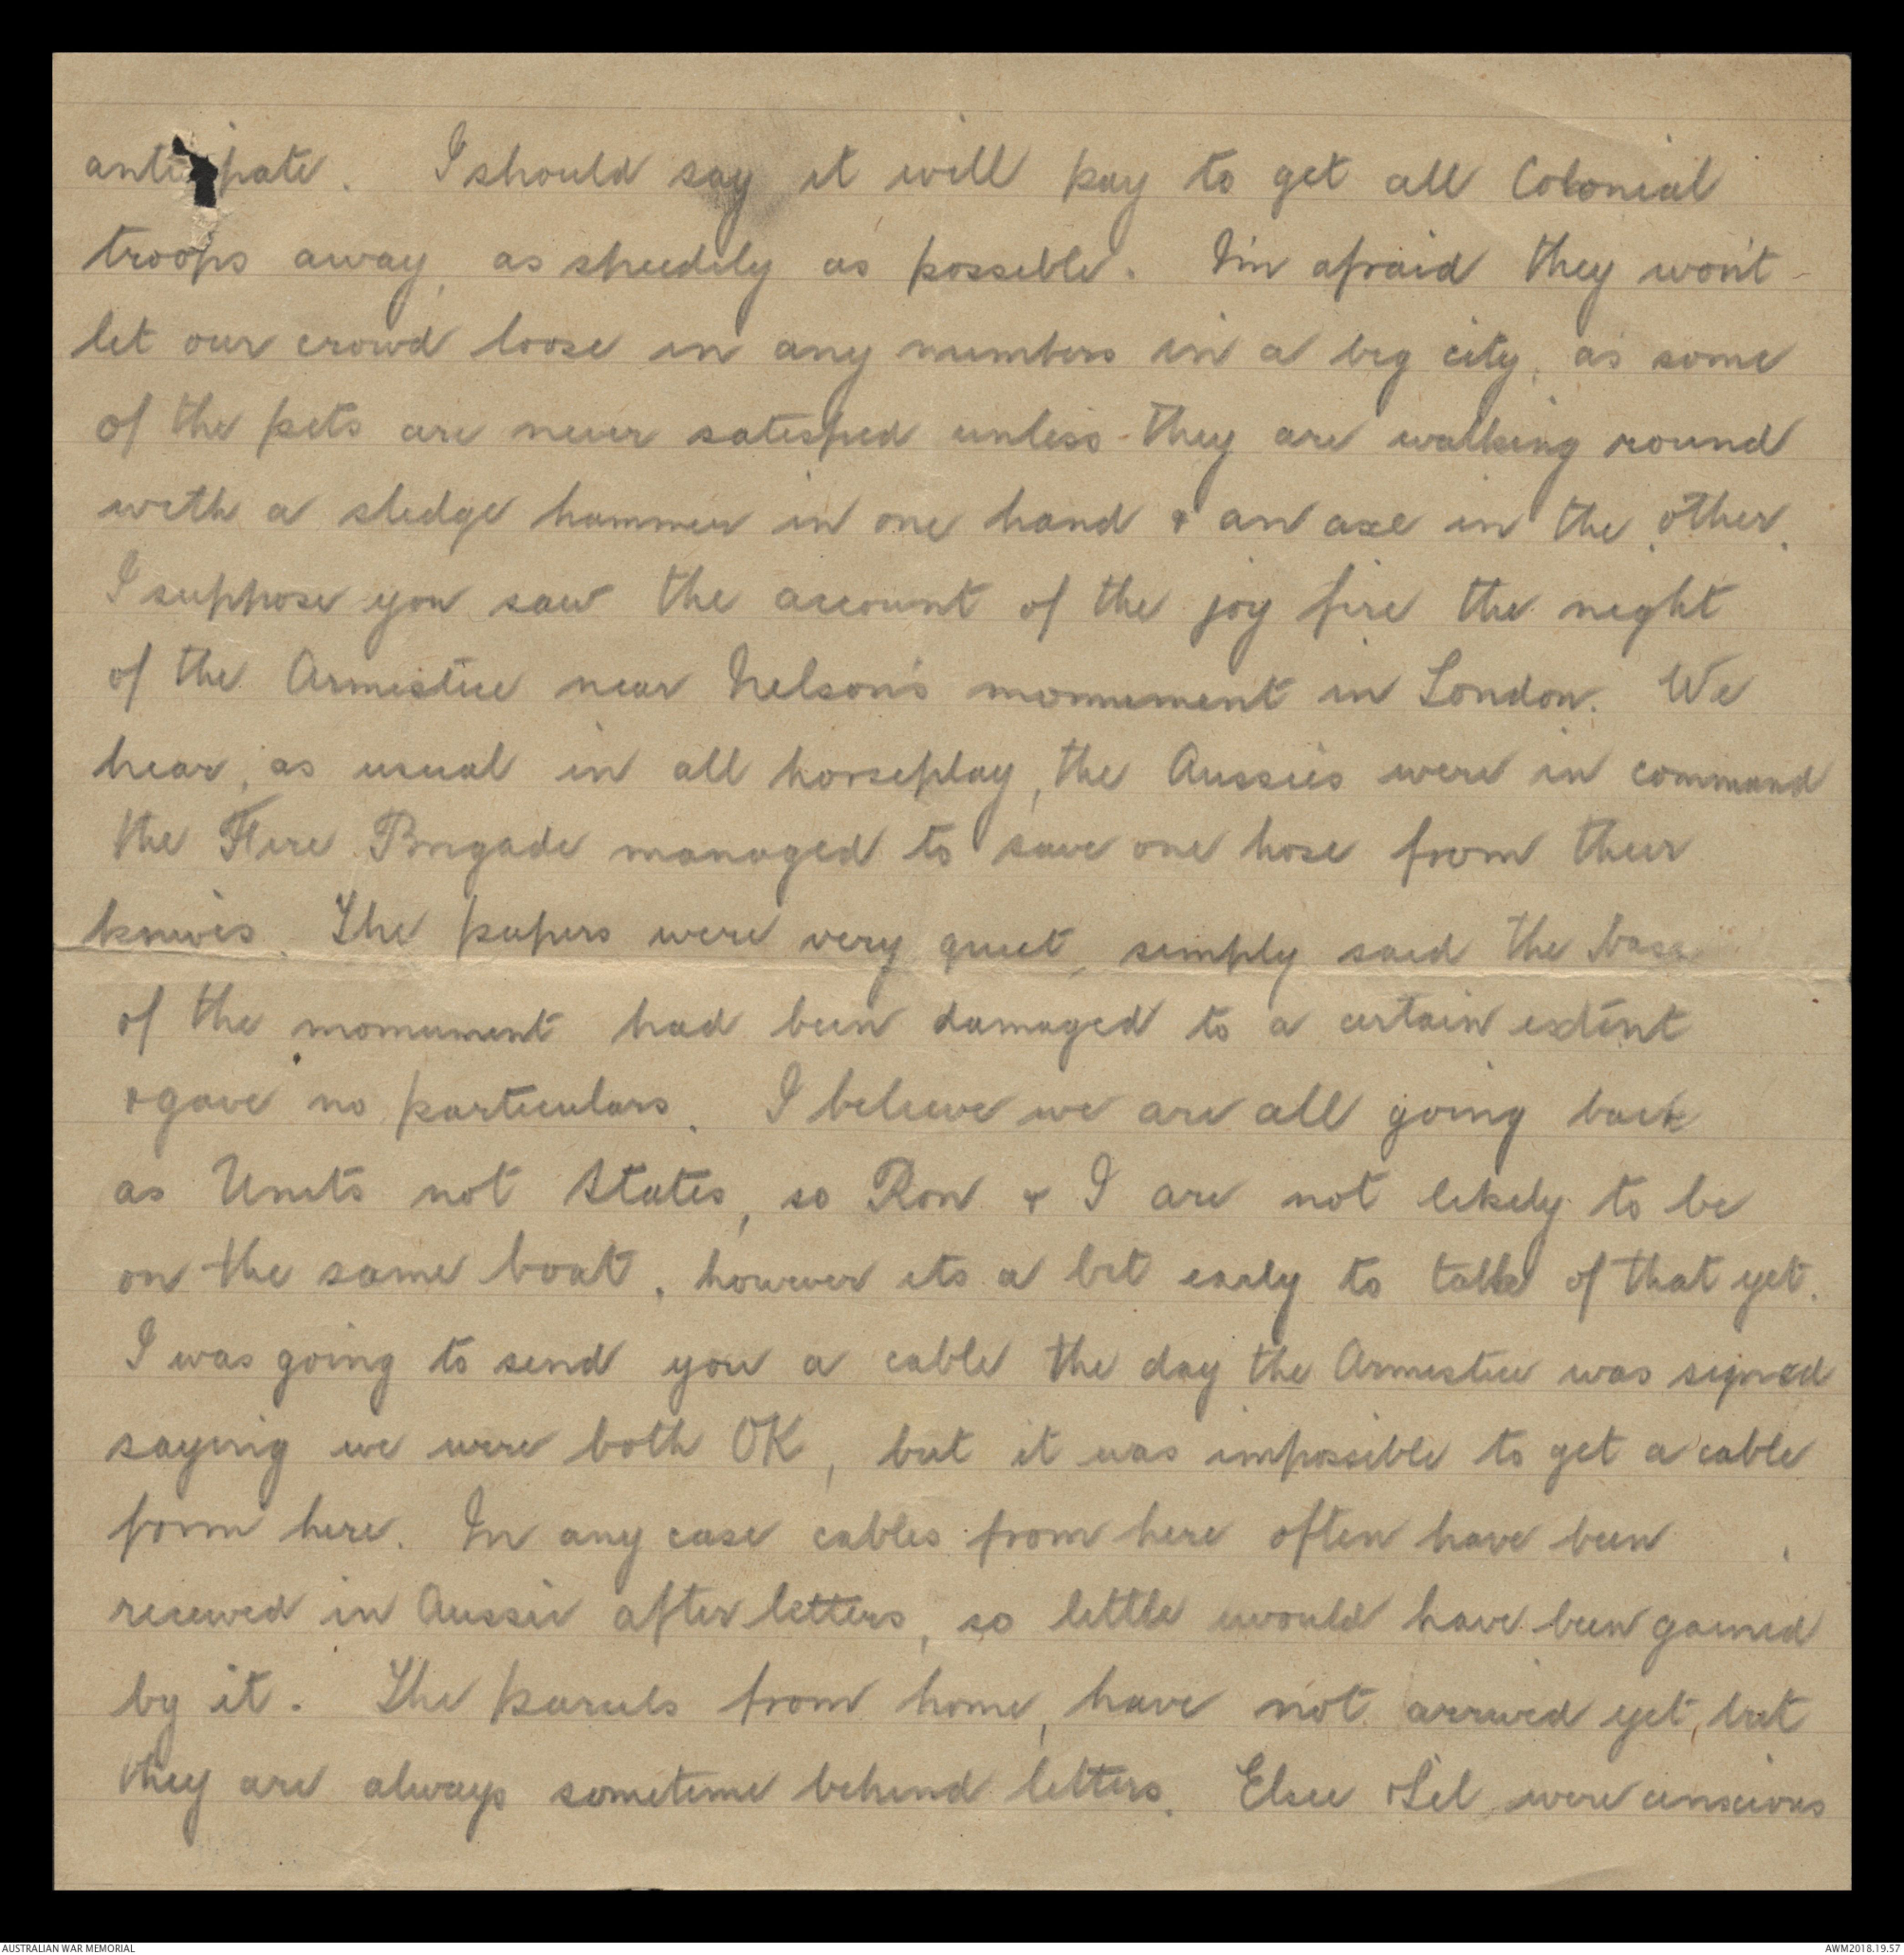 anticipate. I should say it will pay to get all Colonial
troops away, as speedily as possible. I'm afraid they won't
let our crowd loose in any numbers in a big city, as some
of the pets are never satisfied unless they are walking round
with a sledge hammer in one hand & an axe in the other.
I suppose you saw the account of the joy fire the night
of the Armistice near Nelson's monument in London. We
hear, as usual in all horseplay, the Aussies were in command
the Fire Brigade managed to save one hose from their
knives. The papers were very quiet, simply said the base
of the monument had been damaged to a certain extent
& gave no particulars. I believe we are all going back
as Units not States, so Ron & I are not likely to be
on the same boat, however its a bit early to talk of that yet.
I was going to send you a cable the day the Armistice was signed
saying we were both OK, but it was impossible to get a cable
form here. In any case cables from here often have been
received in Aussie after letters, so little would have been gained
by it. The parcels from home, have not arrived yet, but
they are always sometime behind letters. Elsie & Lil were anxious
AUSTRALIAN WAR MEMORIAL
AWM2018.19.57